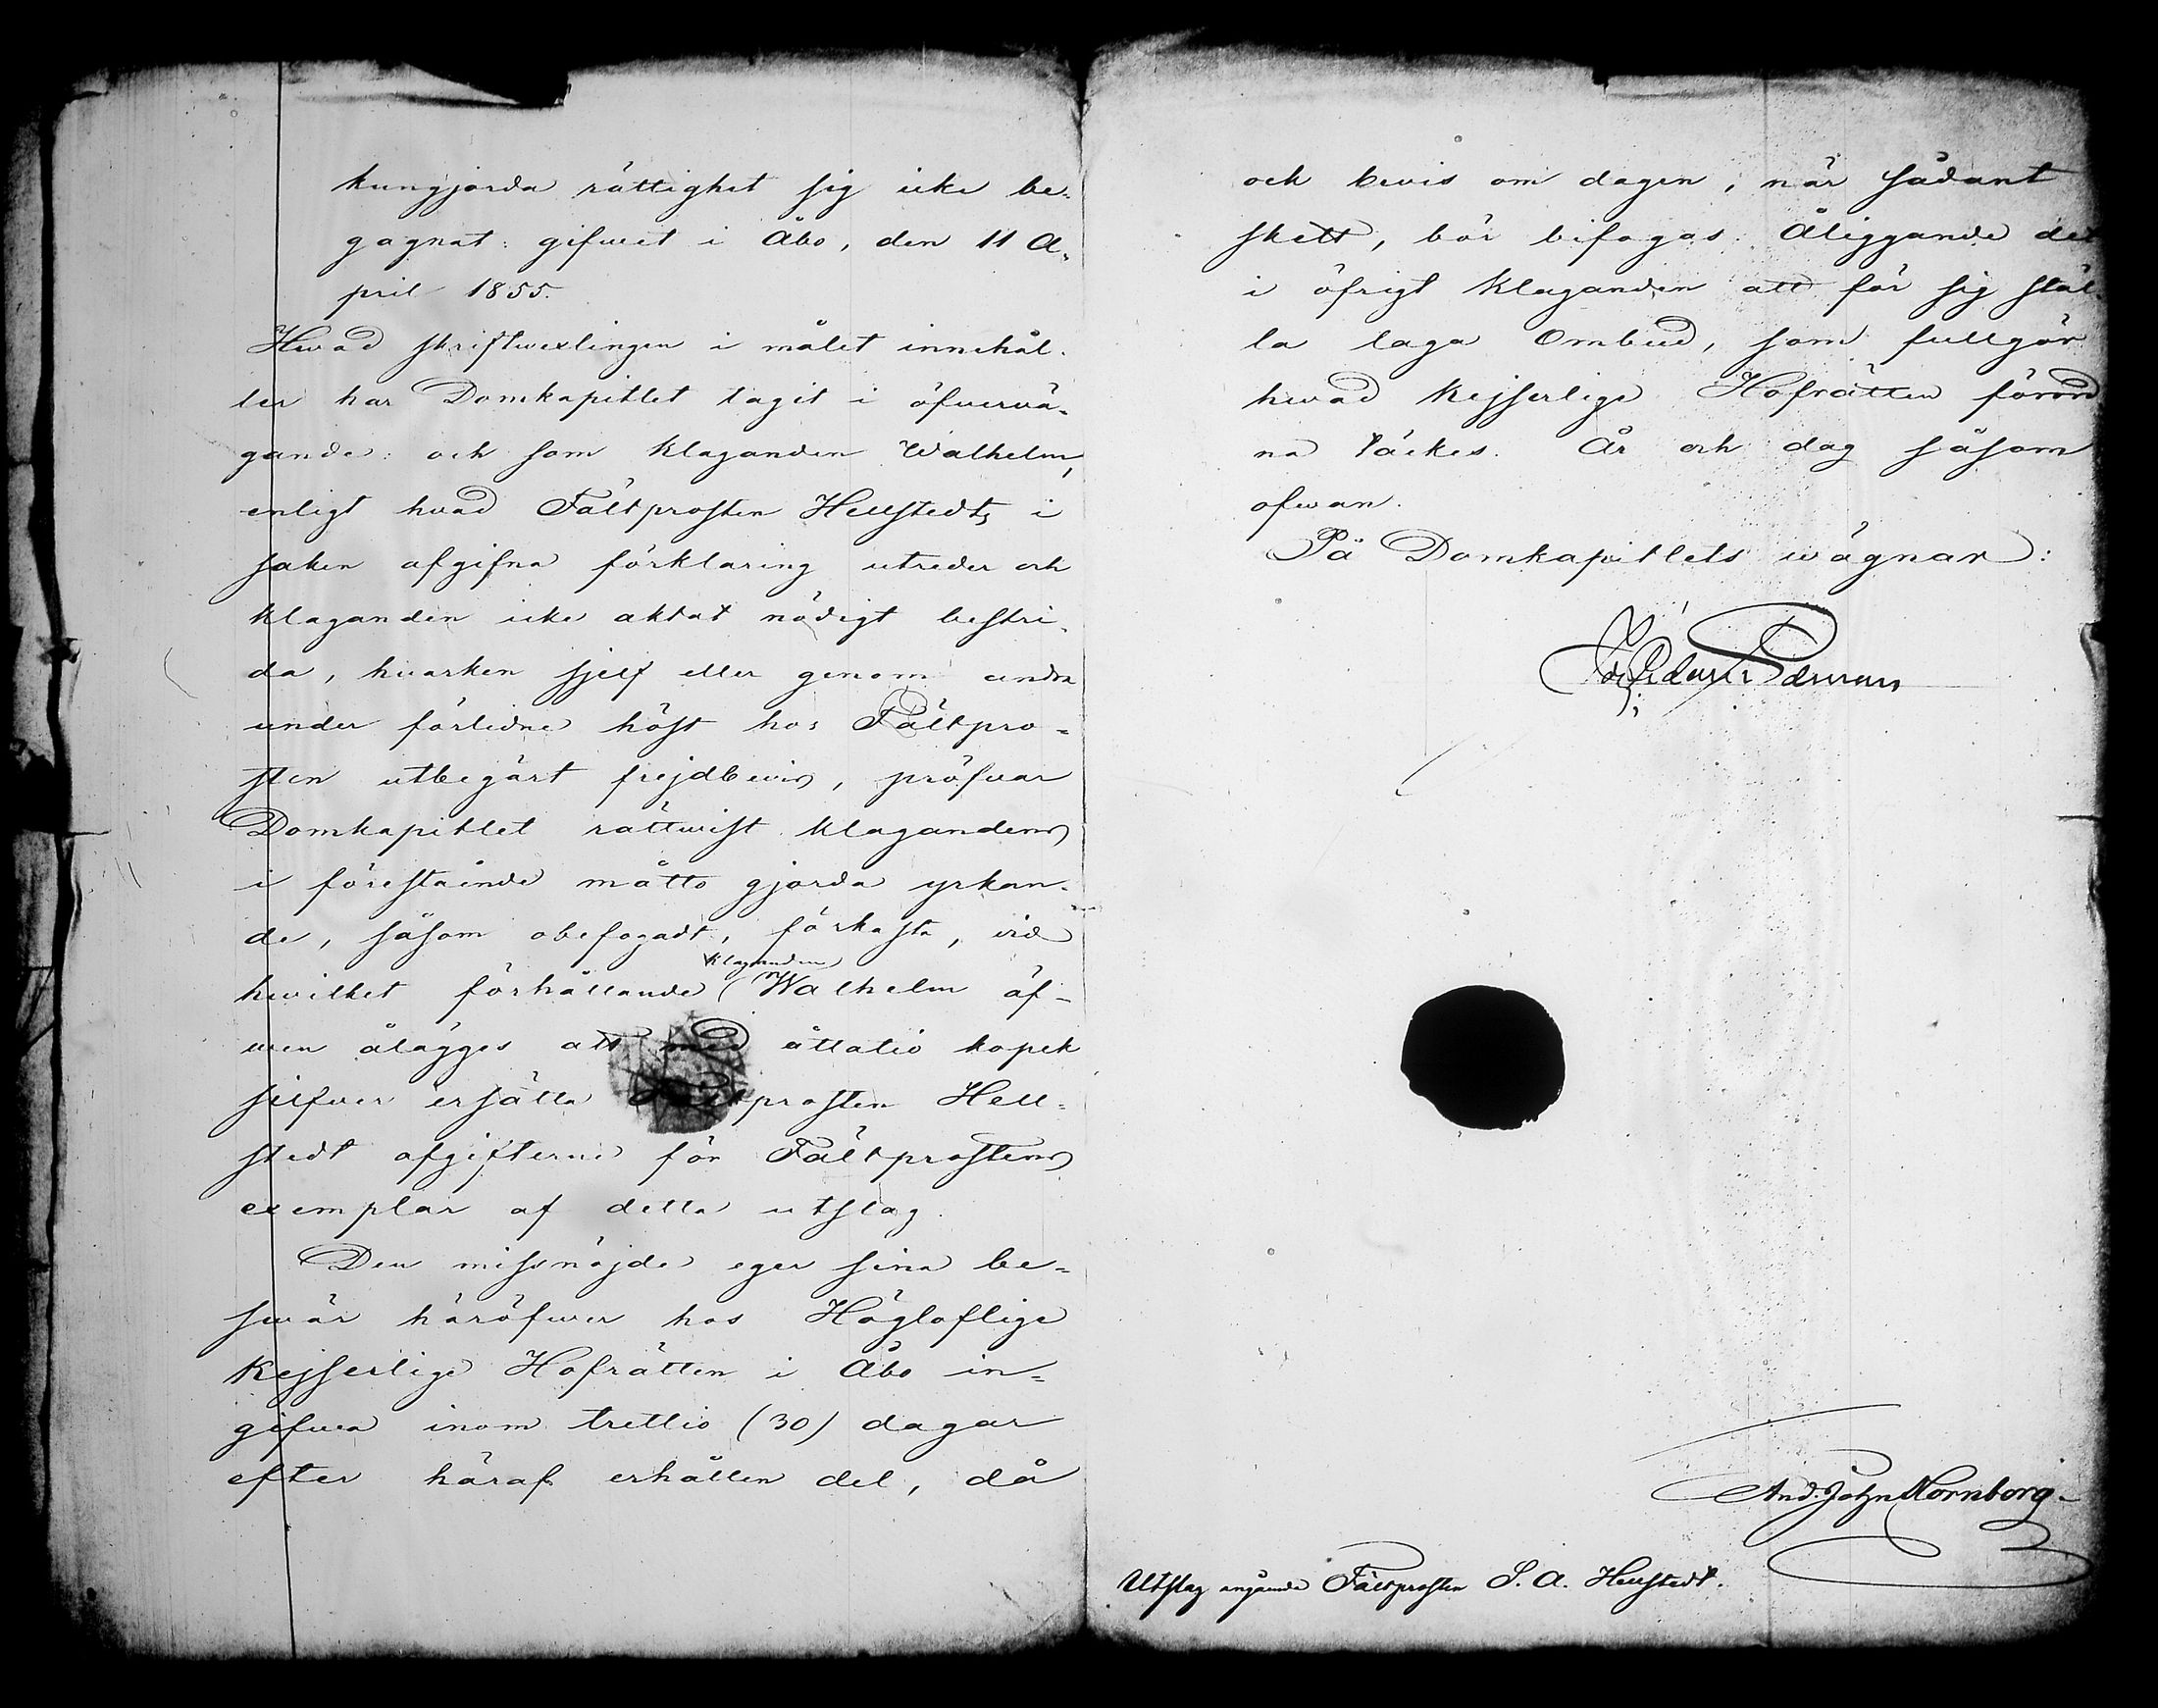 kungjorda rättighet sig icke be-
gagnat: gifwet i Åbo, den 11 A-
pril 1855.
Hwad skriftwexlingen i målet innehål-
ler har Domkapitlet tagit i öfvervä-
gande: och som klaganden Walhelm,
enligt hvad Fältprosten Hellstedts i
saken afgifna förklaring utreder och
klaganden icke aktat nödigt bestri-
da, hvarken sjelf eller genom andra
under förlidne höst hos Fältpro-
sten utbegärt frejdbevis, pröfvar
Domkapitlet rättwist klagandens
i förestående måtto gjorda yrkan-
de, såsom obefogadt, förkasta, vid
hwilket förhållande klaganden Walhelm äf-
wen ålägges att med åttatio kopek
silfver ersätta Fältprosten Hell-
stedt afgifterne för Fältprostens
exemplar af detta utslag.
Den missnöjde eger sina be-
swär häröfwer hos Högloflige
Kejserlige Hofrätten i Åbo in-
gifwa inom trettio (30) dagar
efter häraf erhållen del, då
och bevis om dagen, när sådant
skett, bör bifogas. Åliggande det
i öfrigt klaganden att för sig stäl-
la laga Ombud, som fullgör
hwad Kejserlige Hofrätten förord
na täckes. År och dag såsom
ofwan.
På Domkapitlets wägnar:
And. John Nornborg.
Utslag angående Fältprosten S. A. Hellstedt.